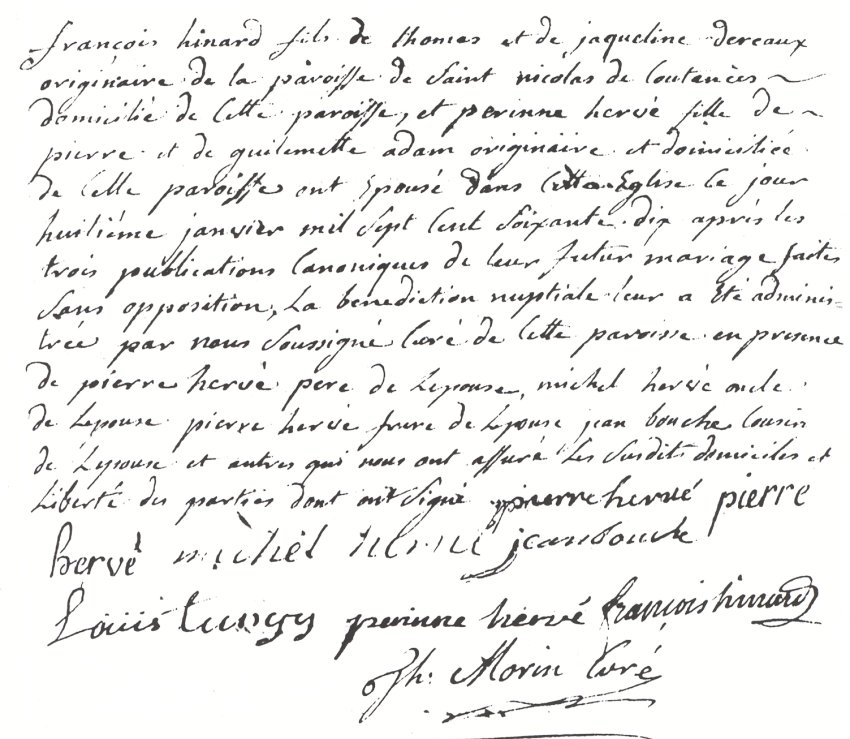 françois hinard fils de thomas et de jaqueline dereaux
originaire de la paroisse de Saint nicolas de Coutances
domicilié de Cette paroisse, et perinne hervé fille de
pierre et de guilemette adam originaire et domiciliée
de Cette paroisse ont Epousé dans Cette Eglise Ce jour
huitiéme janvier mil Sept Cent Soixante dix après les
trois publications Canoniques de leur futur mariage faites
Sans opposition, La benediction nuptiale leur a Eté adminis-
trée par nous Soussigné Curé de Cette paroisse en presence
de pierre hervé pere de Lepouse, michel hervé oncle
de Lepouse pierre hervé frere de Lepouse jean bouche Cousin
de Lepouse et autres qui nous ont assuré Les Susdits domiciles et
Liberté des parties dont ont Signé pierre hervé pierre
hervé michel hervé jean bouche
Louis perinne hervé françois hinard
Morin Curé